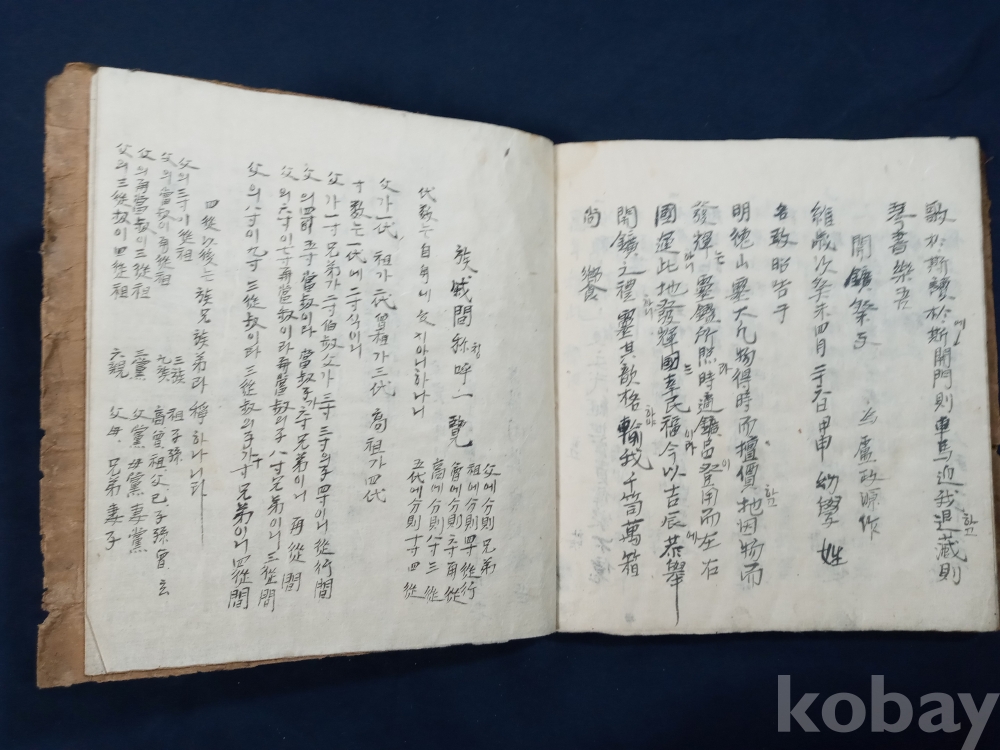 歌於斯讀於斯開門則車馬迎我退藏則
에 하고
琴書樂吾
開鑛祭文
盧政
作
維歲次癸未四月二十六日甲申 幼學 姓
名敢昭告于
明德山靈大凡物得時而擅價地因物而
함
發輝 靈鑛所
時適鑛
登用而左右
는 라 이
國運此地發輝國幸民福今以吉辰恭擧
하니 는 이라 에
開鑛之禮靈其歆格輸我千筒萬箱
하니 하야
尙 饗
族戚間称呼一覽
칭
父에分則兄弟
祖에分則四寸從行
曾에分則六寸再從
高에分則八寸三從
五代에分則十寸四從
代數는自身에는지아니하나니
父가一代 祖가二代曾祖가三代 高祖가四代
寸數는一代에二寸式이니
父가一寸兄弟가二寸伯叔父가三寸三寸의子四寸이니從行間
父의四寸이五寸 當叔이라 當叔子가六寸兄弟이니 再從間
父의六寸이七寸再當叔이라再當叔의子八寸兄弟이니三從間
父의八寸이九寸 三從叔이라 三從叔의子가十寸兄弟이니四從間
四從以後는族兄族弟라 稱하나니라
父의三寸이從祖
父의當叔이再從祖
父의再當叔이三從祖
父의三從叔이四從祖
三族 祖子孫
九族 高曾祖父己子孫曾玄
三黨 父黨母黨妻黨
六親 父母兄弟妻子
kobay